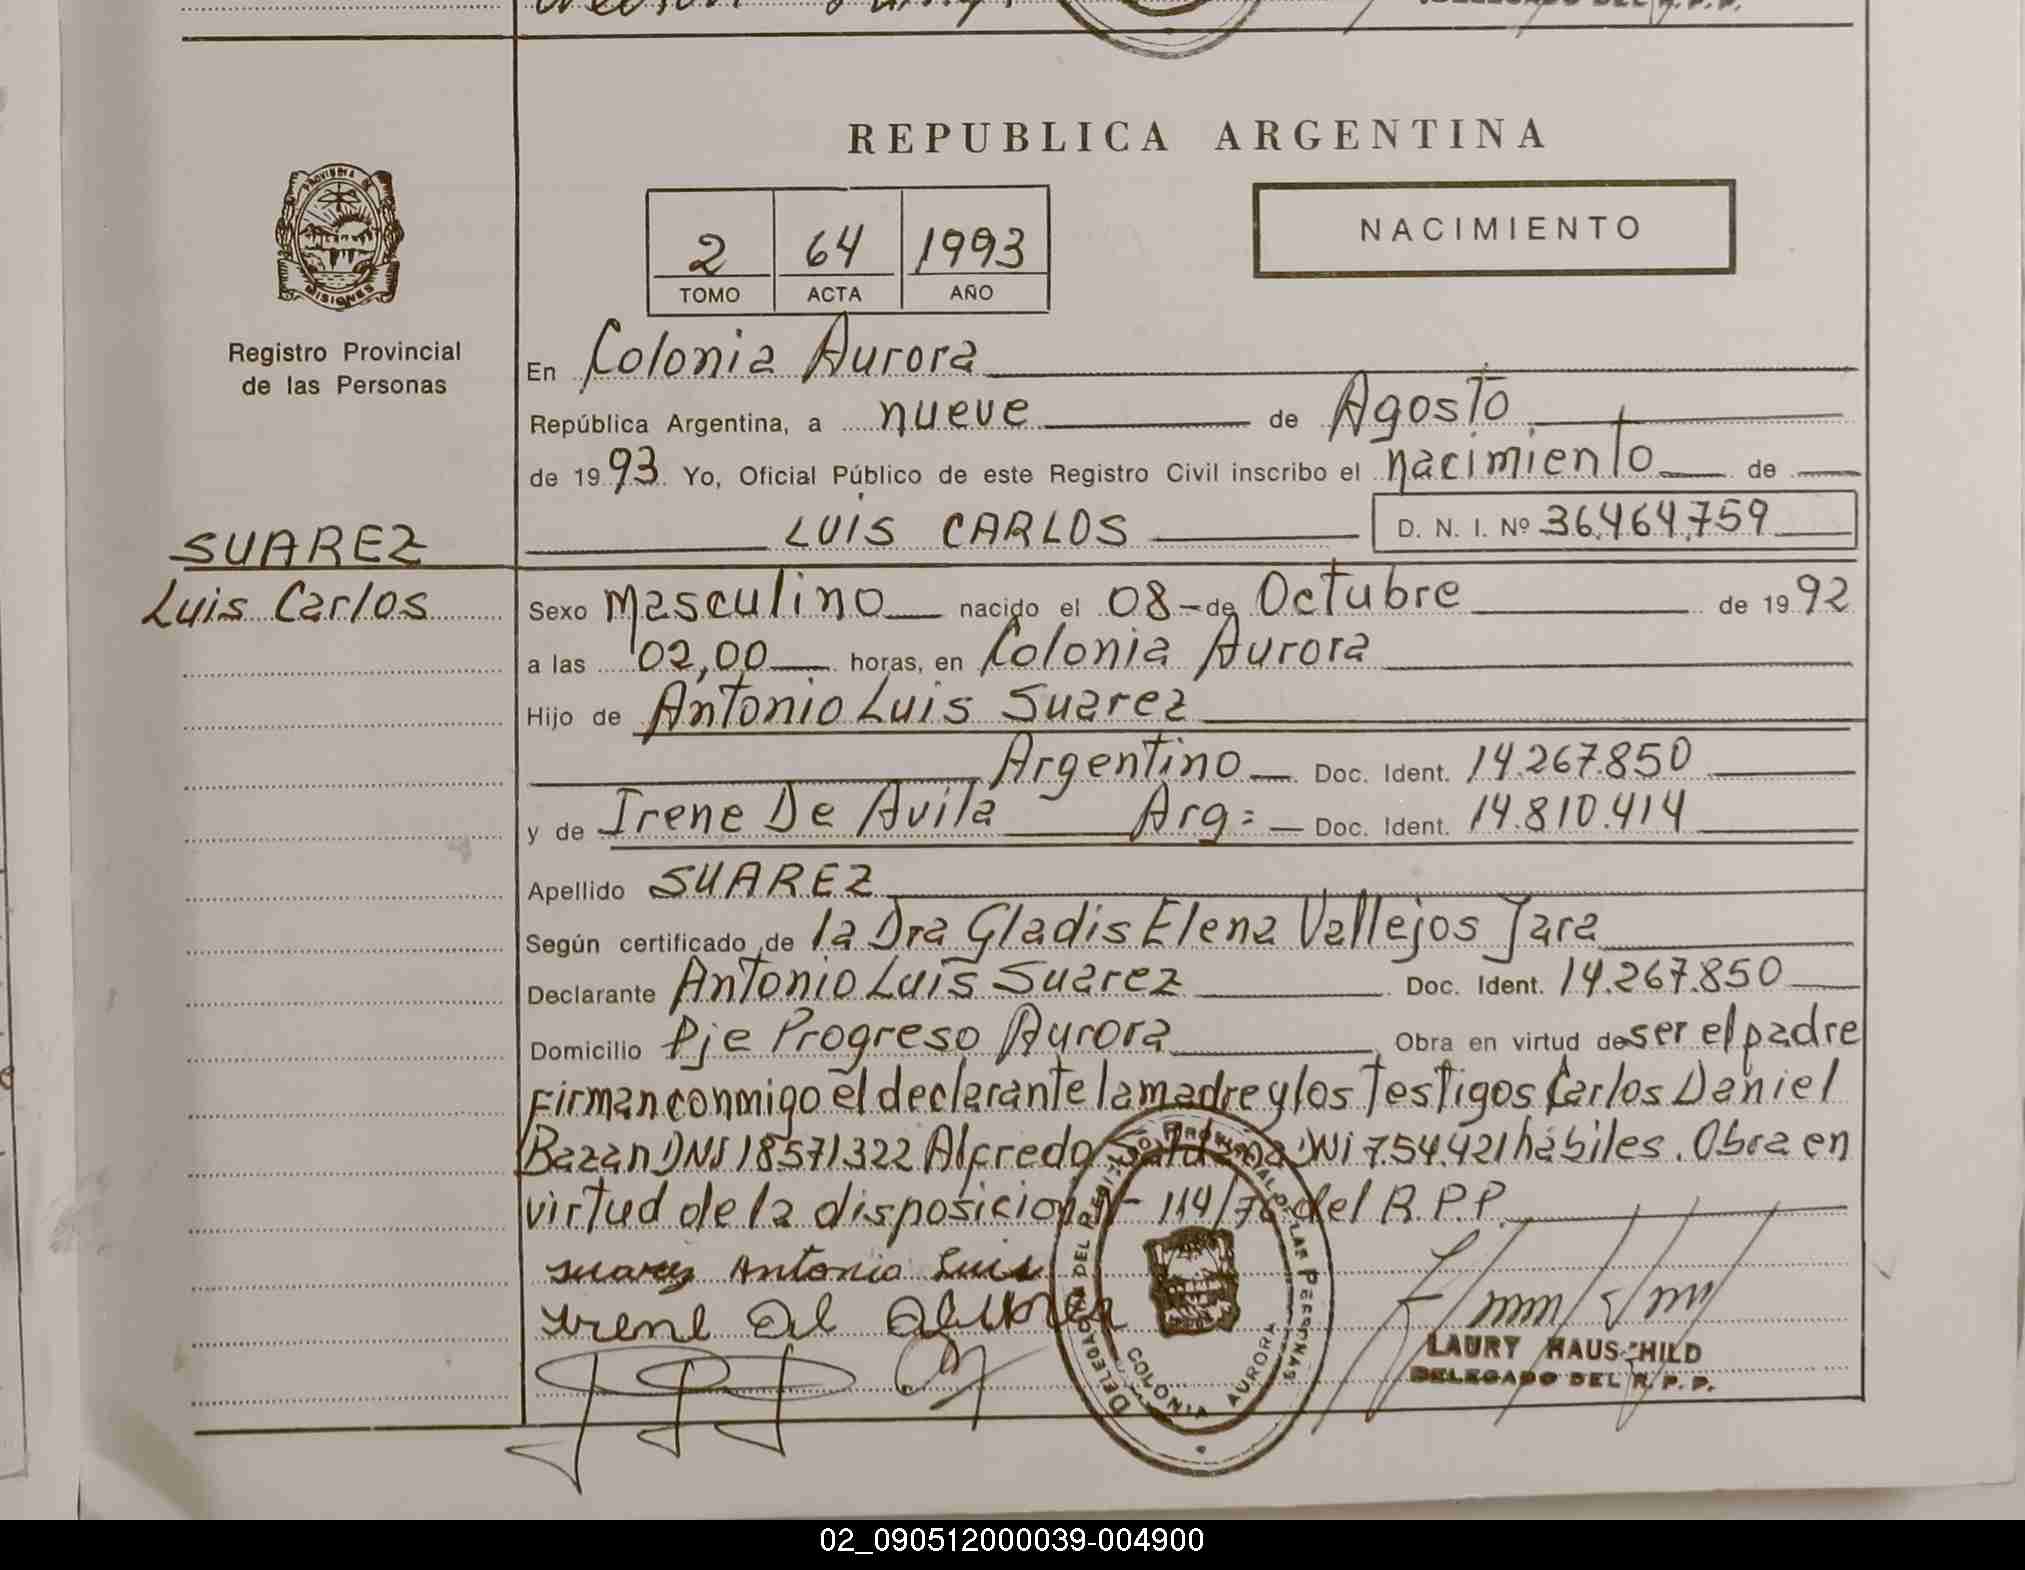 DELEGADO DEL R.P.P.
REPUBLICA ARGENTINA
PROVINCIA DE
MISIONES
2 64 1993
TOMO ACTA AÑO
NACIMIENTO
Registro Provincial
de las Personas
SUAREZ
Luis Carlos
En Colonia Aurora
República Argentina, a nueve de Agosto
de 1993 Yo, Oficial Público de este Registro Civil inscribo el nacimiento de
LUIS CARLOS D. N. I. Nº 36.464.759
Sexo Masculino nacido el 08 - de Octubre de 1992
a las 02,00 horas, en Colonia Aurora
Hijo de Antonio Luis Suarez
Argentino Doc. Ident. 14.267.850
y de Irene De Avila Arg= Doc. Ident. 14.810.414
Apellido SUAREZ
Según certificado de la Dra Gladis Elena Vallejos Jara
Declarante Antonio Luis Suarez Doc. Ident. 14.267.850
Domicilio Pje Progreso Aurora Obra en virtud de ser el padre
Firman conmigo el declarante la madre y los Testigos Carlos Daniel
Bazan DNI 18571322 Alfredo DNi 7.54.421 hábiles. Obra en
virtud de la disposicion Nº 114/76 del R.P.P.
Suarez Antonio Luis
Irene
DELEGACION DEL REGISTRO PROVINCIAL DE LAS PERSONAS
COLONIA AURORA
LAURY HAUSCHILD
DELEGADO DEL R.P.P.
02_090512000039-004900